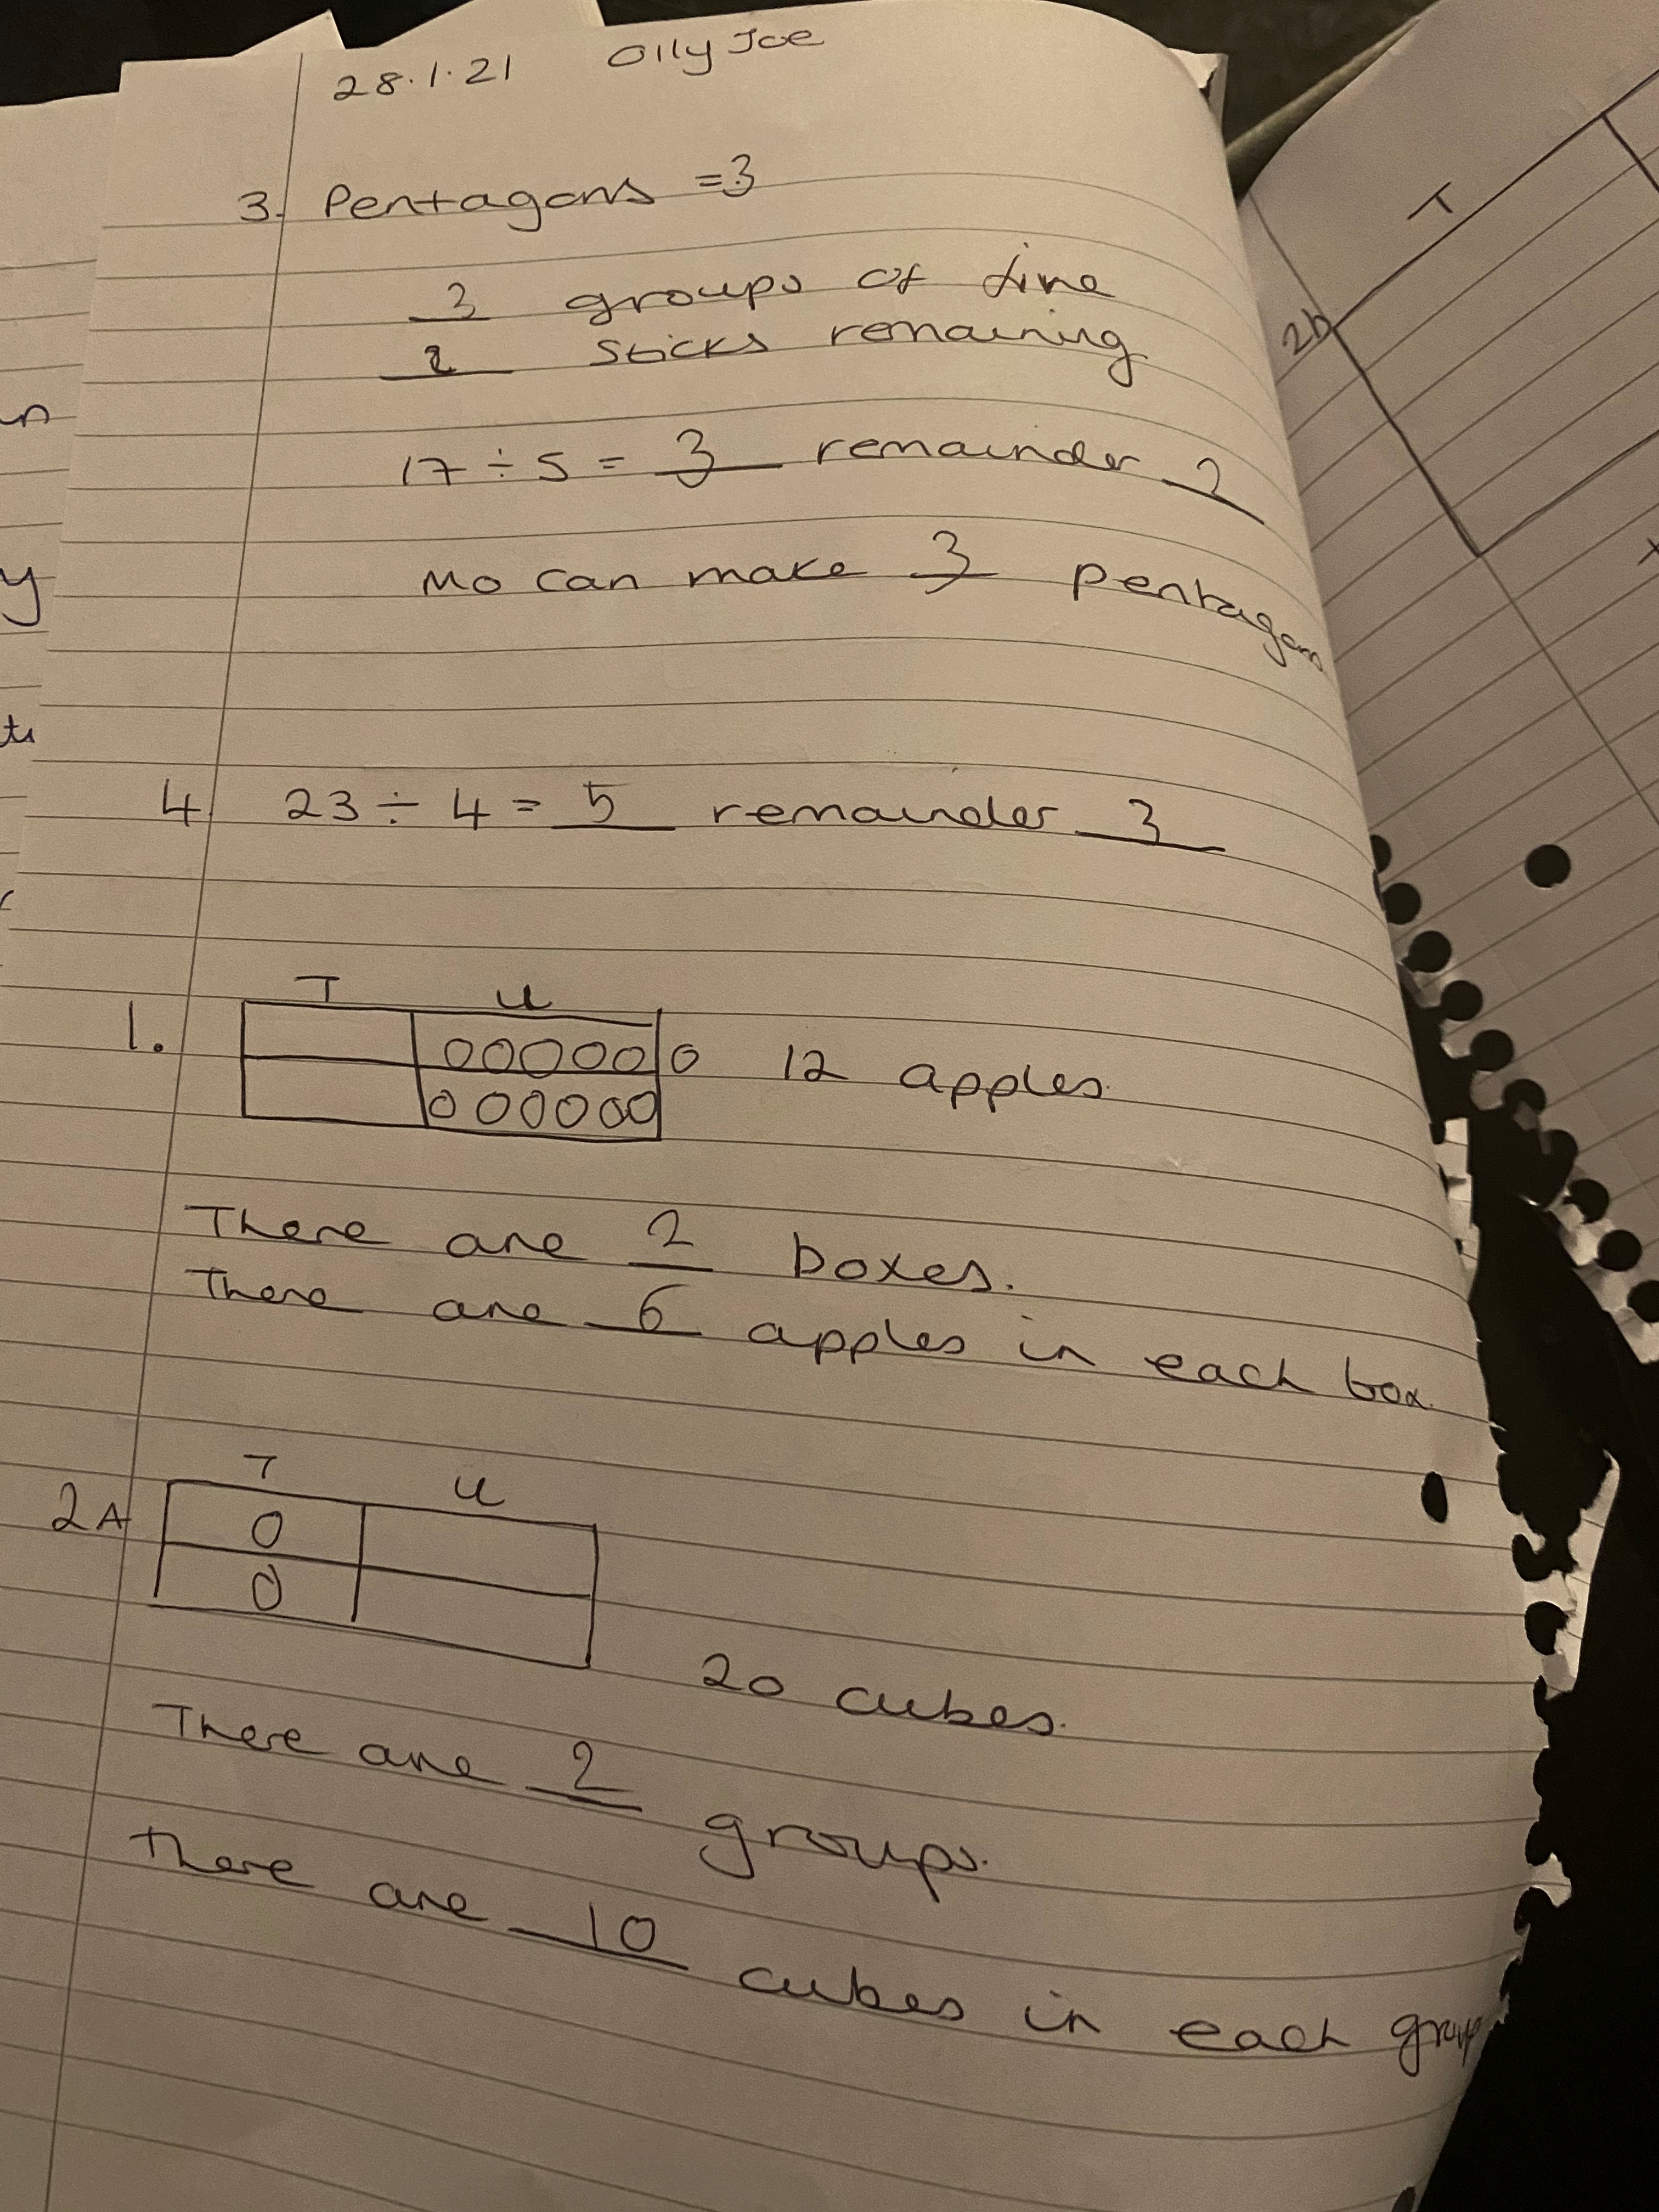 28.1.21 Olly Joe
3. Pentagons = 3
3 groups of five
2 sticks remaining
17 ÷ 5 = 3 remainder 2
Mo can make 3 pentagons
4. 23 ÷ 4 = 5 remainder 3
T U
1. 00000 0 12 apples.
000000
There are 2 boxes.
There are 6 apples in each box.
T U
2A 0
0
20 cubes.
There are 2 groups.
There are 10 cubes in each group
T
2b